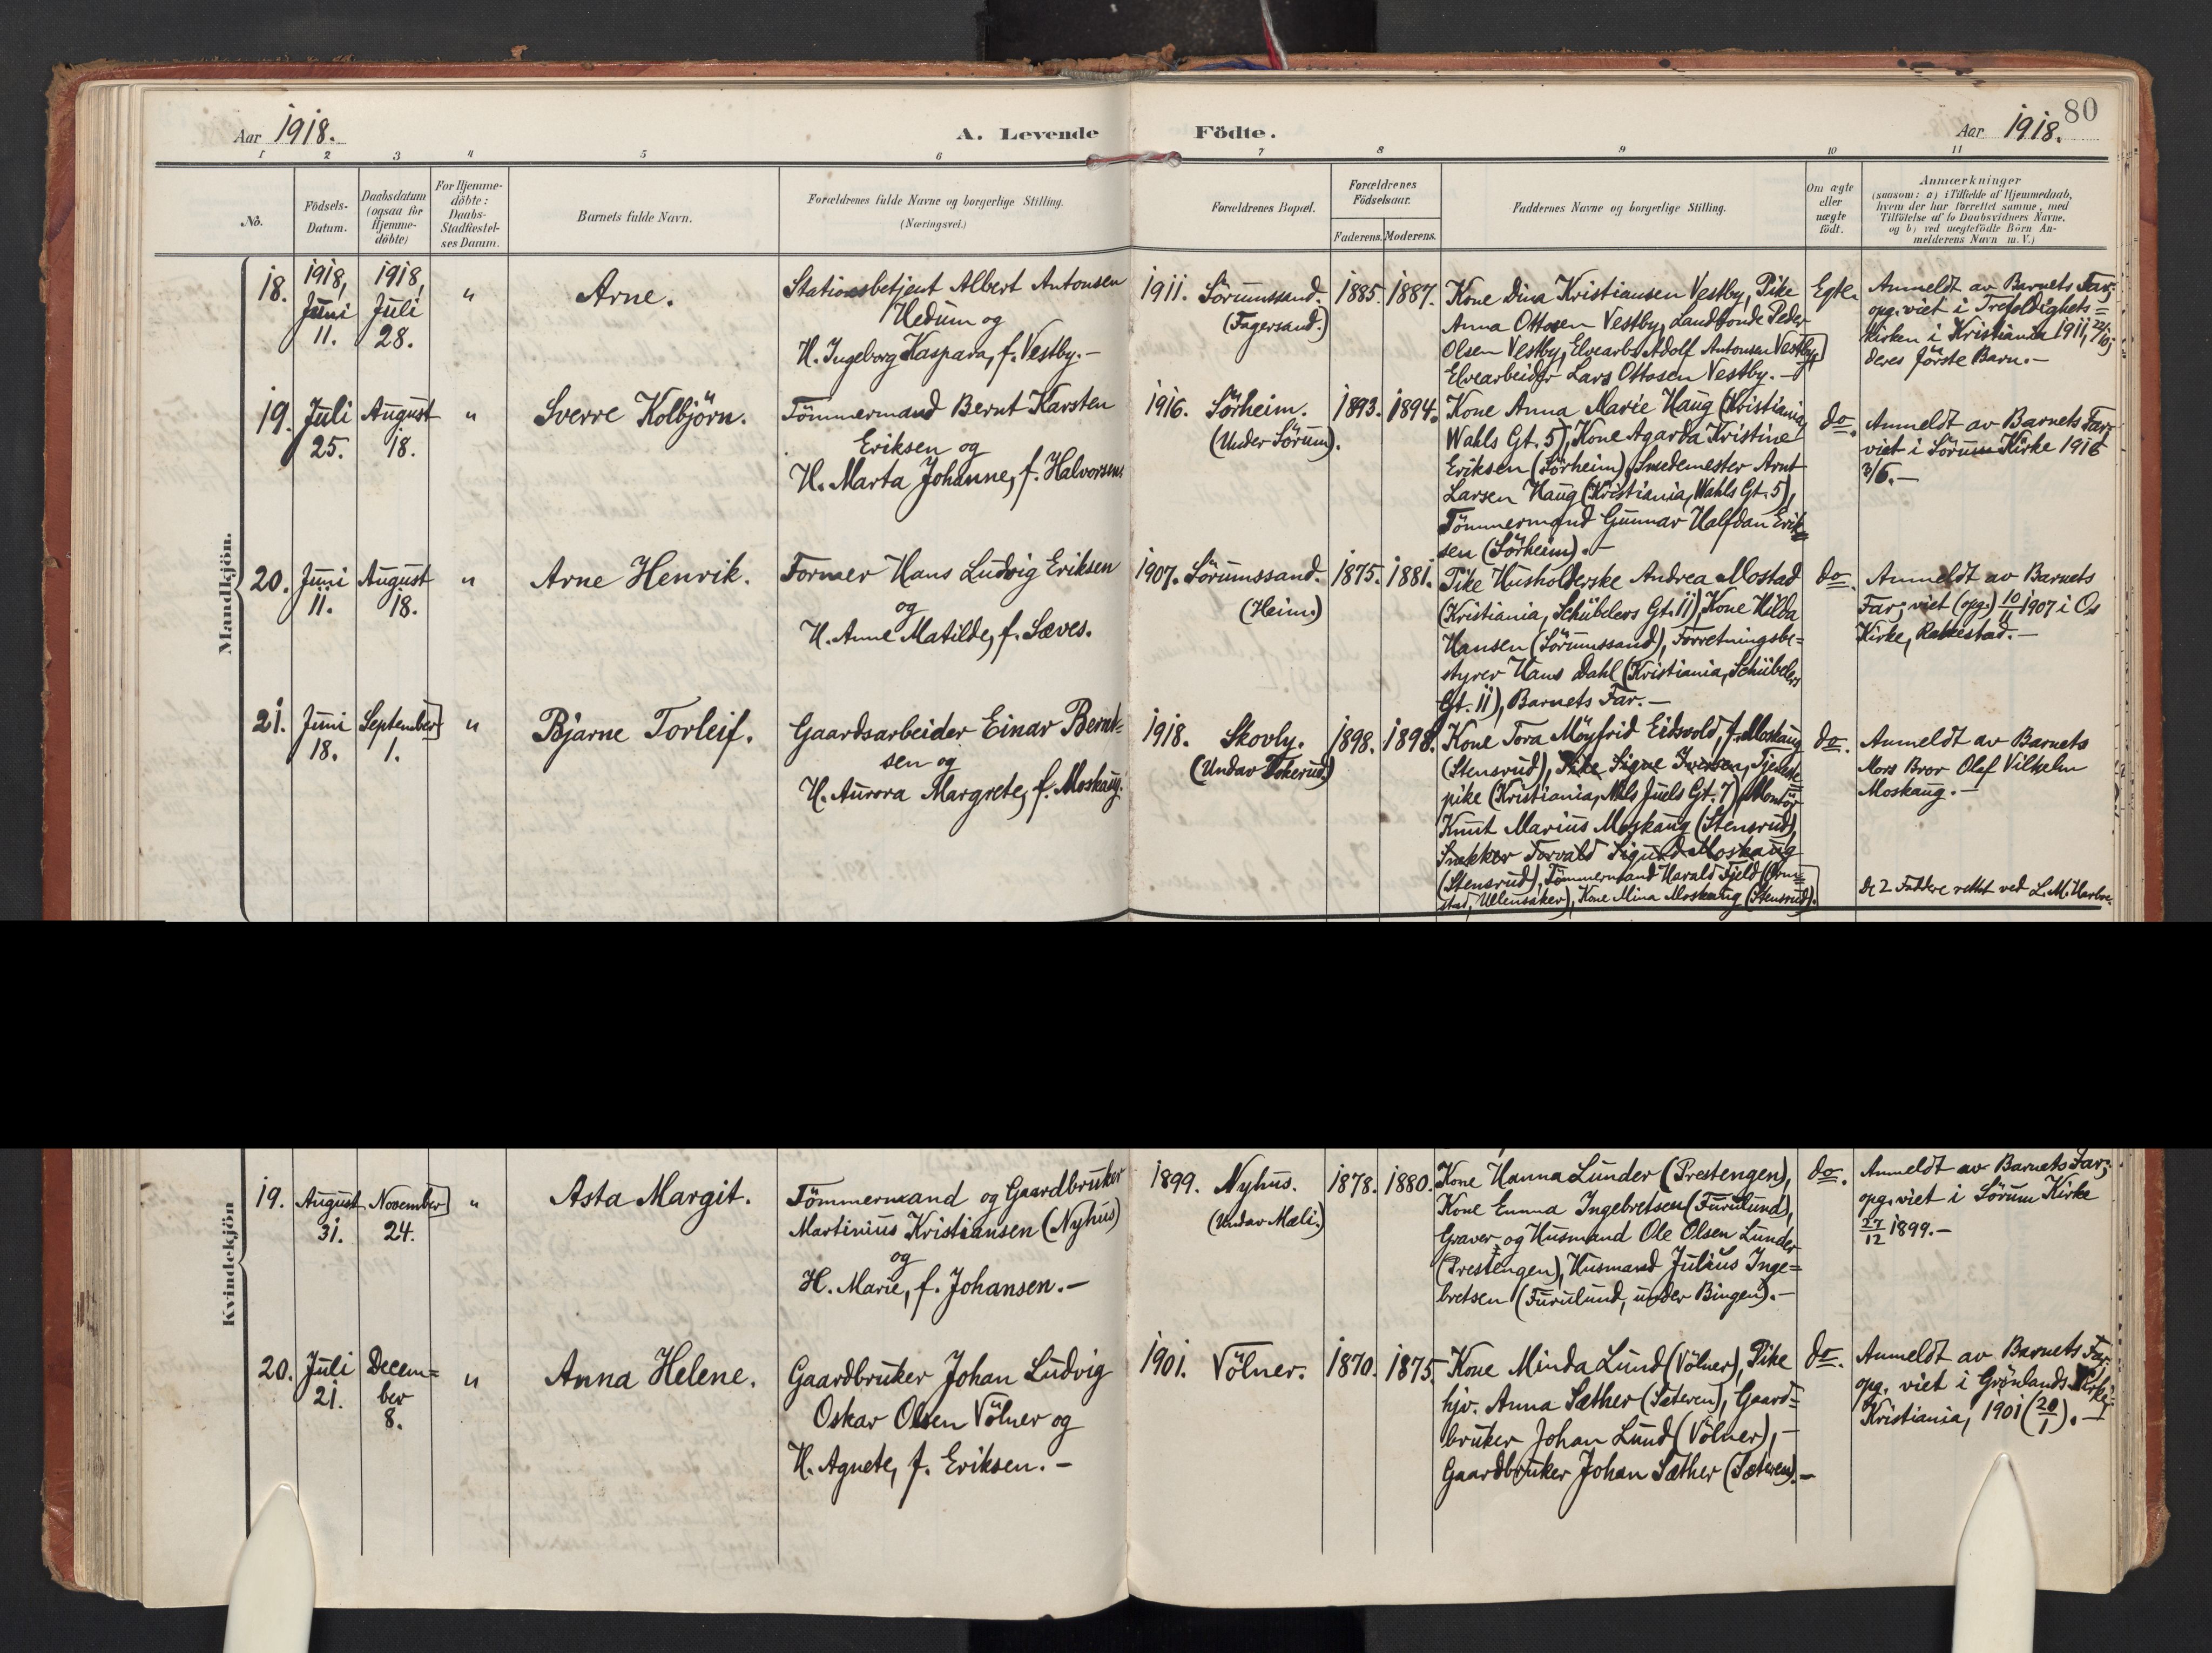 80
Aar 1918.
A. Levende Födte.
Aar 1918.
1 2 3 4 5 6 7 8 9 10 11
No.
Födsels-
Datum.
Daabsdatum
(ogsaa for
Hjemme-
döbte)
For Hjemme-
döbte:
Daabs-
Stadfæstel-
ses Datum.
Barnets fulde Navn.
Forældrenes fulde Navne og borgerlige Stilling.
(Næringsvei.)
Forældrenes Bopæl.
Forældrenes
Födselsaar.
Faderens. Moderens.
Faddernes Navne og borgerlige Stilling.
Om ægte
eller
uægte
født.
Anmærkninger
(saasom: a) i Tilfælde af Hjemmedaab,
hvem der har forrettet samme, med
Tilföielse af to Daabsvidners Navne.
og b) ved uægtefödte Börn An-
melderens Navn m. V.)
Mandkjön.
18.
1918,
Juni
11.
1918,
Juli
28.
"
Arne.
Stationsbetjent Albert Antonsen
Hedum og
H. Ingeborg Kaspara, f. Vestby.-
1911. Sörumssand.
(Fagersand.)
1885. 1887.
Kone Dina Kristiansen Vestby, Pike
Anna Ottosen Vestby, Landbonde Peder
Olsen Vestby, Elvearb. Adolf Antonsen Vestby,
Elvearbeider Lars Ottosen Vestby.-
Egte.
Anmeldt av Barnets Far;
opg. viet i Trefoldighets=
kirken i Kristiania 1911, 22/10;
deres første Barn.-
19.
Juli
25.
August
18.
"
Sverre Kolbjörn.
Tömmermand Bernt Karsten
Eriksen og
H. Marta Johanne, f. Halvorsen.
1916. Sörheim.
(Under Sörum).
1893. 1894.
Kone Anna Marie Haug (Kristiania,
Wahls Gt. 5), Kone Agarda Kristine
Eriksen (Sörheim), Smedemester Arnt
Larsen Haug (Kristiania, Wahls Gt. 5),
Tömmermand Gunnar Halfdan Erik=
sen (Sörheim).-
do.
Anmeldt av Barnets Far;
viet i Sörum Kirke 1916
3/6.-
20.
Juni
11.
August
18.
"
Arne Henrik.
Former Hans Ludvig Eriksen
og
H. Anne Matilde, f. Sæves.
1907. Sörumssand.
(Heim.)
1875. 1881.
Pike Husholderske Andrea Mostad
(Kristiania, Schübelers Gt. 11), Kone Hilda
Hansen (Sörumssand), Forretningsbe=
styrer Hans Dahl (Kristiania, Schübelers
Gt. 11), Barnets Far.-
do.
Anmeldt av Barnets
Far; viet (opg.) 10/11 1907 i Os
Kirke, Rakkestad.-
21.
Juni
18.
September
1.
"
Bjarne Torleif.
Gaardsarbeider Einar Bernt=
sen og
H. Aurora Margrete, f. Moskaug.
1918. Skovly.
(Undav Tokerud.)
1898. 1898.
Kone Tora Möyfrid Eidsvold, f. Moskaug
(Stensrud), Pike Signe Iversen, Tjeneste
pike (Kristiania, Nils Juels Gt. 7), Montör
Knut Marius Moskaug (Stensrud),
Snekker Torvald Sigurd Moskaug
(Stensrud), Tömmermand Harald Fjeld (Orm=
stad, Ullensaker), Kone Mina Moskaug (Stensrud).
do.
Anmeldt av Barnets
Mors Bror Olaf Vilhelm
Moskaug.-
De 2 Faddere rettet ved
Kvindekjön
19.
August
31.
November
24.
"
Asta Margit.
Tömmermand og Gaardbruker
Martinius Kristiansen (Nyhus)
og
H. Marie, f. Johansen.-
1899. Nyhus.
(Undav Mæli.)
1878. 1880.
Kone Hanna Lunder (Prestengen),
Kone Emma Ingebretsen (Furulund),
Graver og Husmand Ole Olsen Lunder
(Prestengen), Husmand Julius Inge=
bretsen (Furulund, under Bingen).-
do.
Anmeldt av Barnets Far;
opg. viet i Sörum Kirke
27/12 1899.-
20.
Juli
21.
Decem=
ber
8.
"
Anna Helene.
Gaardbruker Johan Ludvig
Oskar Olsen Völner og
H. Agnete, f. Eriksen.-
1901. Völner.
1870. 1875.
Kone Minda Lund (Völner), Pike
hjv. Anna Sæther (Sæteren), Gaard=
bruker Johan Lund (Völner),-
Gaardbruker Johan Sæther (Sæteren).-
do.
Anmeldt av Barnets Far,
opg. viet i Grönlands Kirke,
Kristiania, 1901 (20/1).-